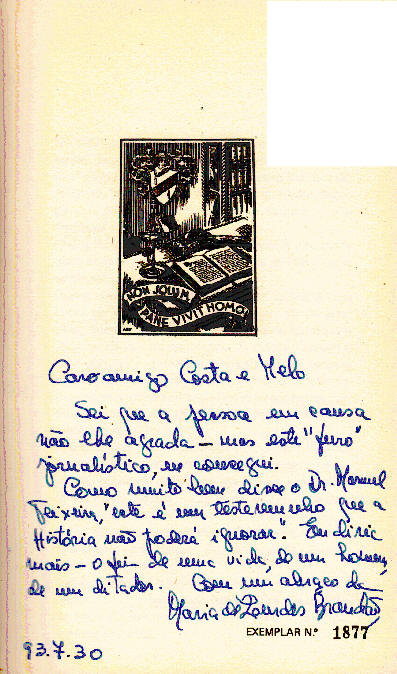 NON SOLUM
IN PANE VIVIT HOMO
Caro amigo Costa e Melo
Sei que a pessoa em causa
não lhe agrada — mas este "furo"
jornalístico, eu consegui.
Como muito bem disse o Dr. Manuel
Teixeira, "este é um testemunho que a
História não poderá ignorar". Eu diria
mais — o fim de uma vida, de um homem,
de um ditador. Com um abraço da
Maria de Lourdes Brandão
EXEMPLAR N.º 1877
93.7.30